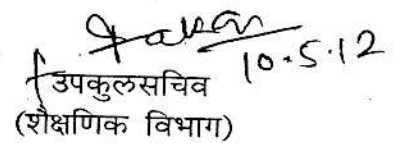 10.5.12
उपकुलसचिव
(शैक्षणिक विभाग)